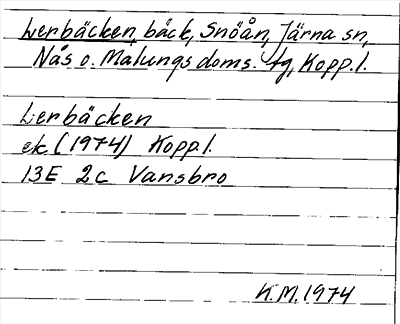 Lerbäcken, bäck, Snöån, Järna sn,
Nås o. Malungs doms. tg, Kopp. l.
Lerbäcken
ek. (1974) Kopp. l.
13E 2c Vansbro
K.M. 1974